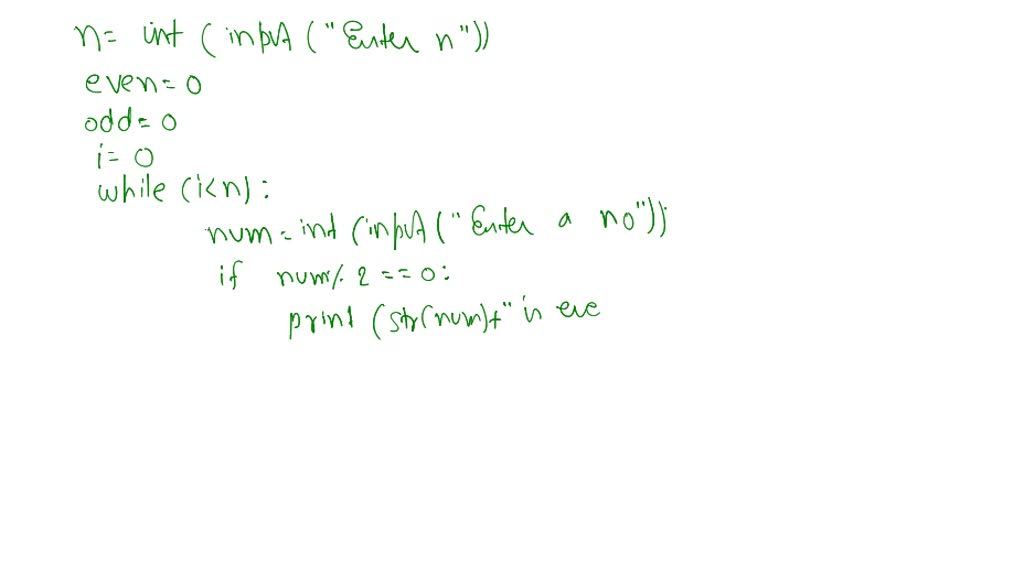 n= int (input ("Enter n"))
even=0
odd=0
i=0
while (i<n):
num=int (input ("Enter a no"))
if num% 2 ==0:
print (str(num)+" is eve